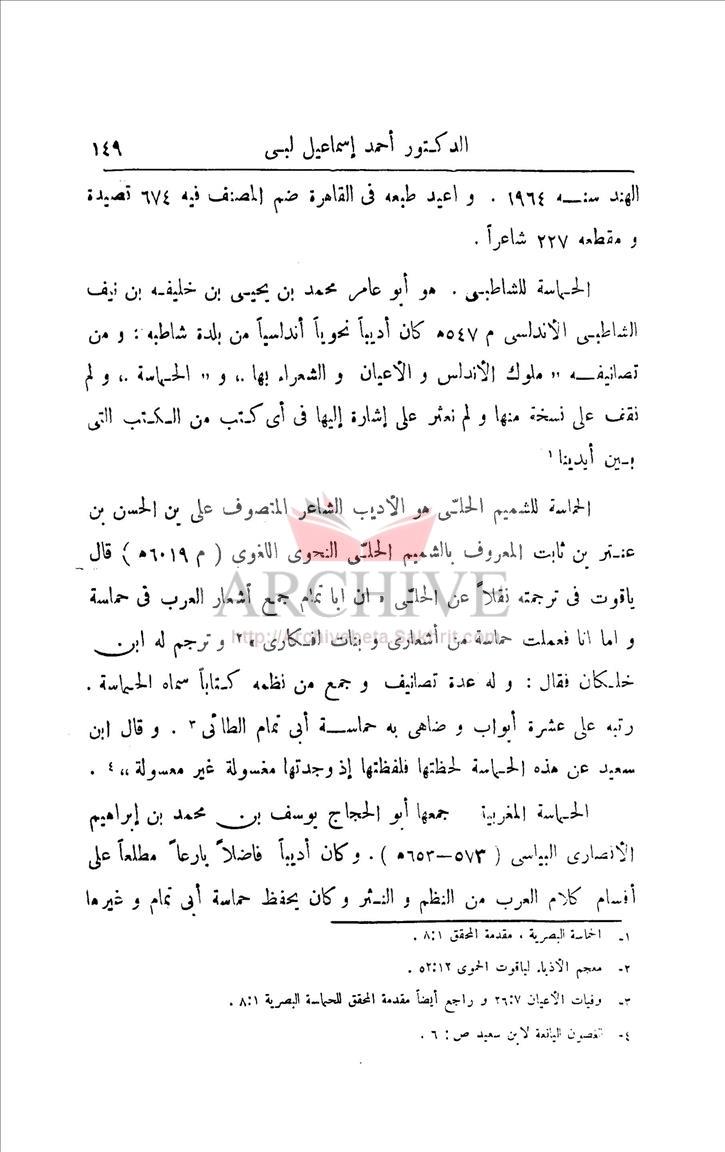 الدكتور أحمد إسماعيل لبى ١٤٩
الهند سنـــه ١٩٦٤ . و اعيد طبعه فى القاهرة ضم المصنف فيه ٦٧٤ تصيدة
و مقطعه ٢٢٧ شاعراً .
الحماسة للشاطبى . هو أبو عامر محمد بن يحيى بن خليفه بن نيف
الشاطبى الأندلسى م ٥٤٧ﻫ كان أديباً نحوياً أندلسياً من بلدة شاطبه : و من
تصانيفـــه ,, ملوك الأندلس و الأعيان و الشعراء بها ,, و ,, الحماسة ,, و لم
نقف على نسخة منها و لم نعثر على إشارة إليها فى أى كتب من الكتب التى
بين أيدينا ١
الحماسة للشميم الحلّى هو الأديب الشاعر المتصوف على بن الحسن بن
عنتر بن ثابت المعروف بالشميم الحلّى النحوى اللغوى ( م ٦٠١٩ﻫ ) قال
ARCHIVE
ياقوت فى ترجمته نقلاً عن الحلّى « ان ابا تمام جمع أشعار العرب فى حماسة
http://Archivebeta.Sakhrit.com
و اما انا فعملت حماسة من أشعارى و بنات افكارى » ٢ و ترجم له ابن
خلكان فقال : و له عدة تصانيف و جمع من نظمه كتاباً سماه الحماسة .
رتبه على عشرة أبواب و ضاهى به حماســـة أبى تمام الطائى ٣ . و قال ابن
سعيد عن هذه الحماسة لحظتها فلفظتها إذ وجدتها مغسولة غير معسولة ,, ٤ .
الحماسة المغربية جمعها أبو الحجاج يوسف بن محمد بن إبراهيم
الأنصارى البياسى ( ٥٧٣—٦٥٣ﻫ ) . وكان أديباً فاضلاً بارعاً مطلعاً على
أقسام كلام العرب من النظم و النثر وكان يحفظ حماسة أبى تمام و غيرها
١- الحماسة البصرية ، مقدمة المحقق ٨:١ .
٢- معجم الأدباء لياقوت الحموى ٥٢:١٢ .
٣- وفيات الأعيان ٢٦:٧ و راجع أيضاً مقدمة المحقق للحماسة البصرية ٨:١ .
٤- الغصون اليانعة لابن سعيد ص : ٦ .